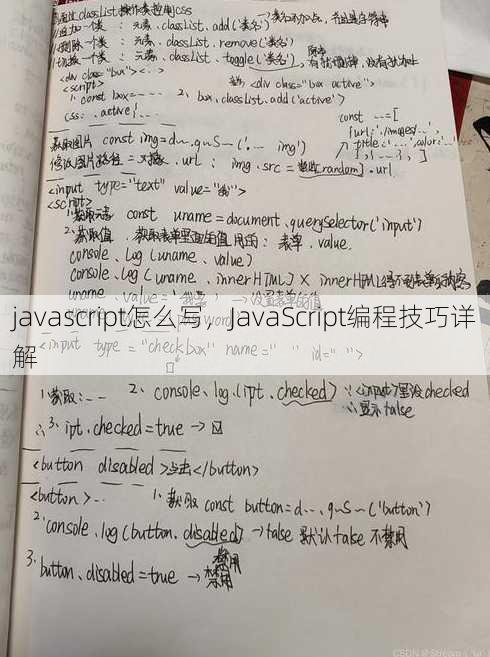 通过classList操作类控制css
追加一个类 : 元素.classList.add('类名')
删除一个类 : 元素.classList.remove('类名')
切换一个类 : 元素.classList.toggle('类名')
<div class="box"><...
<script>
1. const box=---- 2、box.classList.add('active')
css: .active{...
变为 <div class="box active">
const ---=[
{url:'./images/...',
title:'---',color:'--'
},{---},]
获取图片 const img=d~.quS~('.-- img')
.url : img.src = 数组[random].url
<input type="text" value="
<script>
1.获取元素 const uname=document.querySelector('input')
2.获取值 . 获取表单里面的值 用的: 表单.value.
console.log(uname.value)
console.log(uname.innerHTML) × innerHTML得不到表单的内容
uname.value = →设置表单的值
javascript怎么写，JavaScript编程技巧详
解
<input type="checkbox" name="" id="">
1.获取:--- 2、console.log(ipt.checked) ∵<input>里没checked
∴显示false
∴3. ipt.checked=true → ☑
<button disabled>点击</button>
<button>-- 1.获取 const button=d~.quS~('button')
2.console.log(button.disabled) →false 默认false 不禁用
3. button.disabled=true → 禁用